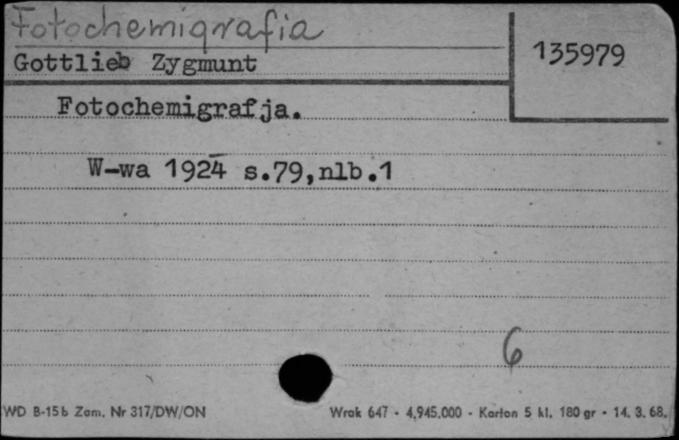 Fotochemigrafia
Gottlieb Zygmunt
135979
Fotochemigrafja.
W-wa 1924 s.79,nlb.1
6
WD B-15b Zam. Nr 317/DW/ON
Wrak 647 - 4.945.000 - Karton 5 kl. 180 gr - 14. 3. 68.